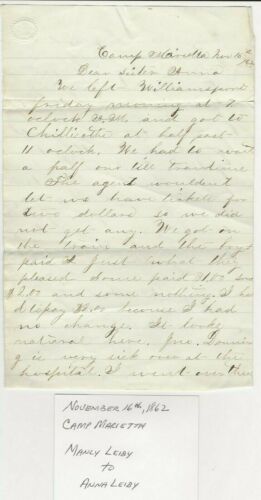 Camp Marietta Nov 16th
1862
Dear Sister Anna
We left Williamsport
friday morning at 7
oclock A.M. and got to
Chillicothe at half past
11 oclock. We had to wait
a half our till traintime
The agent wouldn't
let us have tickets for
two dollars so we did
not get any. We got on
the train and the boys
paid just what they
pleased some paid $1.00 some
$2.00 and some nothing. I had
to pay because I had
no change. It looks
national here. Jno.
is very sick over at the
hospital. I went over
NOVEMBER 16th, 1862
CAMP MARIETTA
MANLY LEIBY
TO
ANNA LEIBY